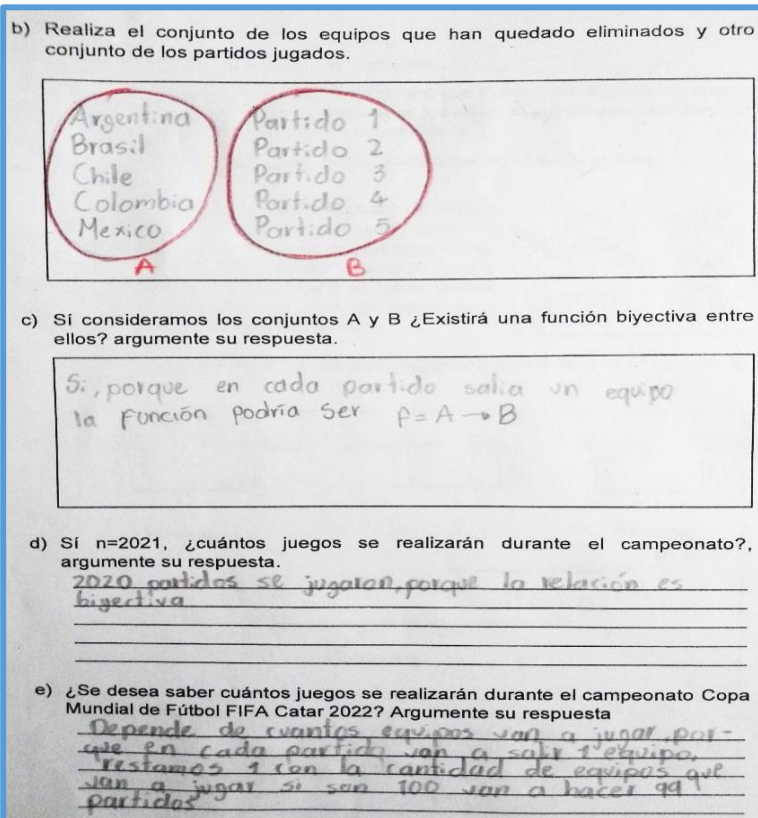 b) Realiza el conjunto de los equipos que han quedado eliminados y otro
conjunto de los partidos jugados.
Argentina
Brasil
Chile
Colombia
Mexico
A
Partido 1
Partido 2
Partido 3
Partido 4
Partido 5
B
c) Sí consideramos los conjuntos A y B ¿Existirá una función biyectiva entre
ellos? argumente su respuesta.
Si, porque en cada partido salia un equipo
la función podría ser f = A → B
d) Sí n=2021, ¿cuántos juegos se realizarán durante el campeonato?,
argumente su respuesta.
2020 partidos se jugaron, porque la relación es
biyectiva
e) ¿Se desea saber cuántos juegos se realizarán durante el campeonato Copa
Mundial de Fútbol FIFA Catar 2022? Argumente su respuesta
Depende de cuantos equipos van a jugar, por-
que en cada partido van a salir 1 equipo,
restamos 1 con la cantidad de equipos que
van a jugar si son 100 van a hacer 99
partidos